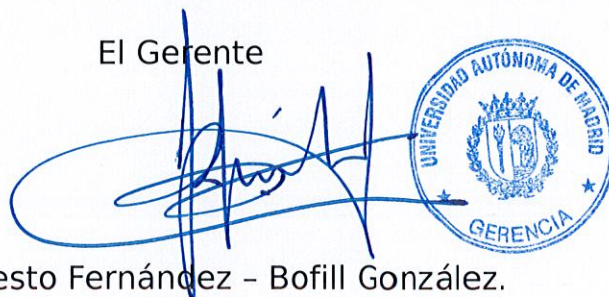 El Gerente
UNIVERSIDAD AUTÓNOMA DE MADRID
GERENCIA
esto Fernández – Bofill González.